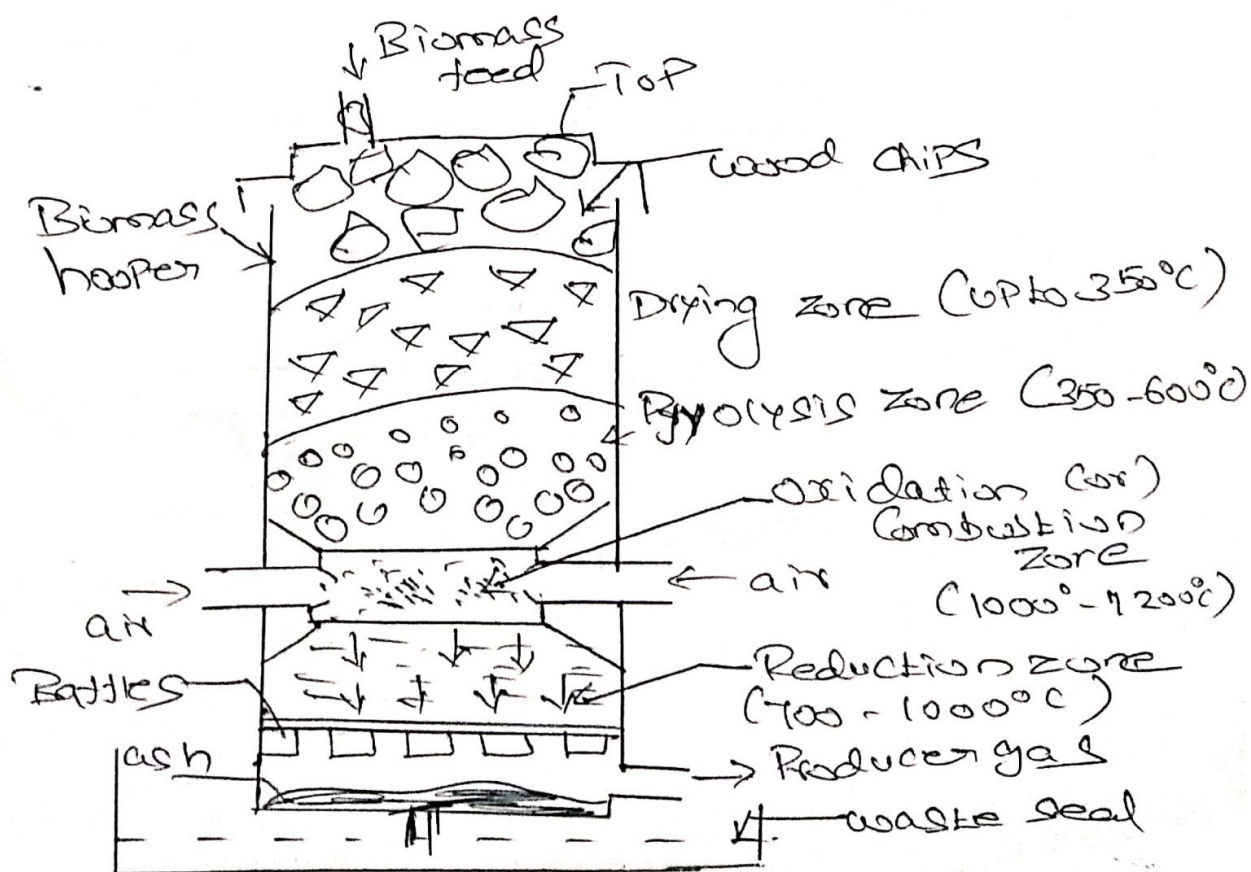 Biomass
feed
Top
wood chips
Biomass
hooper
Drying zone (upto 350°C)
Pyrolysis zone (350-600°C)
oxidation (or)
Combustion
zone
(1000°-1200°C)
air
air
Reduction zone
(700-1000°C)
Baffles
ash
Producer gas
waste seal